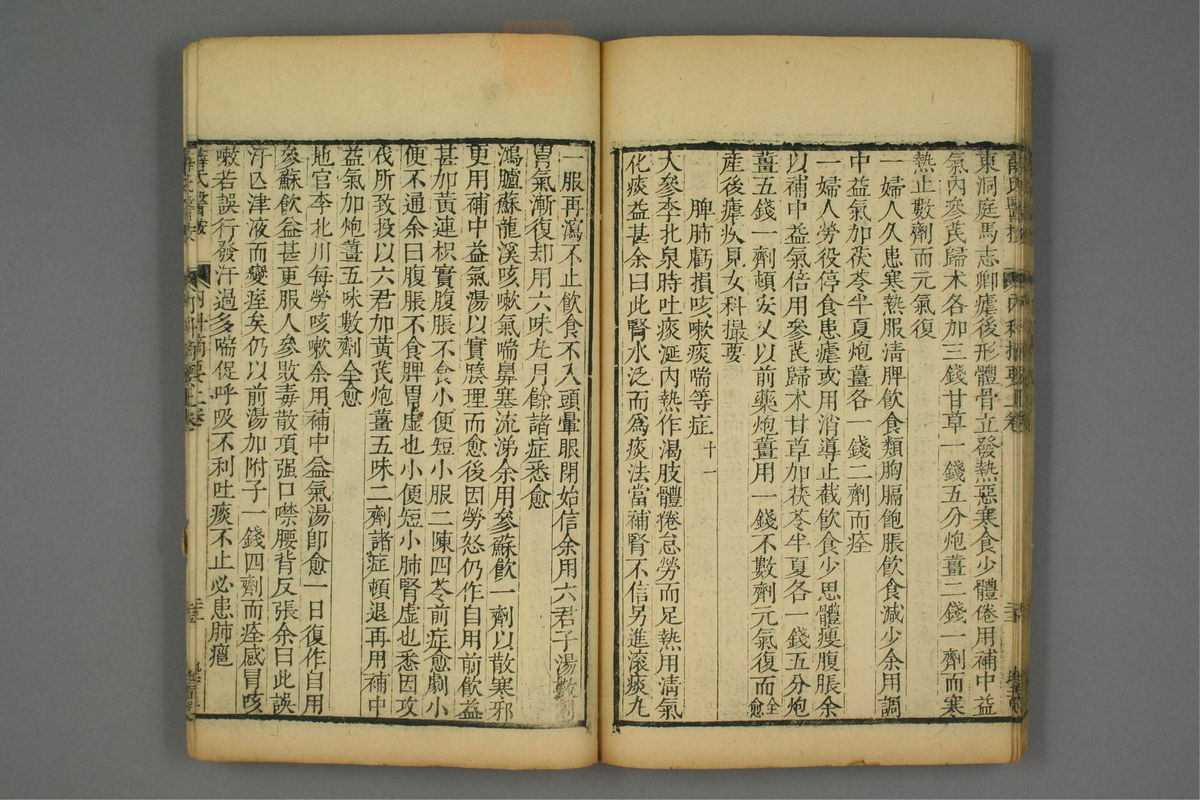 薛氏醫按 內科摘要上卷
東洞庭馬志卿瘧後形體骨立發熱惡寒食少體倦用補中益
氣內參芪歸术各加三錢甘草一錢五分炮薑二錢一劑而寒
熱止數劑而元氣復
一婦人久患寒熱服清脾飲食類胸膈飽脹飲食減少余用調
中益氣加茯苓半夏炮薑各一錢二劑而痊
一婦人勞役停食患瘧或用消導止截飲食少思體瘦腹脹余
以補中益氣倍用參芪歸术甘草加茯苓半夏各一錢五分炮
薑五錢一劑頓安又以前藥炮薑用一錢不數劑元氣復而全愈
產後瘧疾見女科撮要
脾肺虧損咳嗽痰喘等症 十一
大參李北泉時吐痰涎內熱作渴肢體倦怠勞而足熱用清氣
化痰益甚余曰此腎水泛而爲痰法當補腎不信另進滾痰丸
一服再瀉不止飲食不入頭暈眼閉始信余用六君子湯數劑
胃氣漸復却用六味丸月餘諸症悉愈
鴻臚蘇龍溪咳嗽氣喘鼻塞流涕余用參蘇飮一劑以散寒邪
更用補中益氣湯以實腠理而愈後因勞怒仍作自用前飮益
甚加黃連枳實腹脹不食小便短小服二陳四苓前症愈劇小
便不通余曰腹脹不食脾胃虛也小便短小肺腎虛也悉因攻
伐所致投以六君加黃芪炮薑五味二劑諸症頓退再用補中
益氣加炮薑五味數劑全愈
地官李北川每勞咳嗽余用補中益氣湯卽愈一日復作自用
參蘇飮益甚更服人參敗毒散項强口噤腰背反張余曰此誤
汗亾津液而變痙矣仍以前湯加附子一錢四劑而痊感冒咳
嗽若誤行發汗過多喘促呼吸不利吐痰不止必患肺癰
薛氏醫按 內科摘要上卷